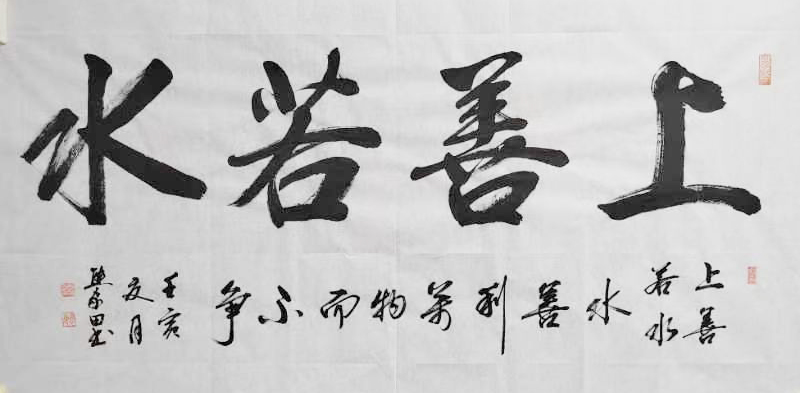 上善若水
上善
若水
水善利萬物而不争
壬寅
夏月